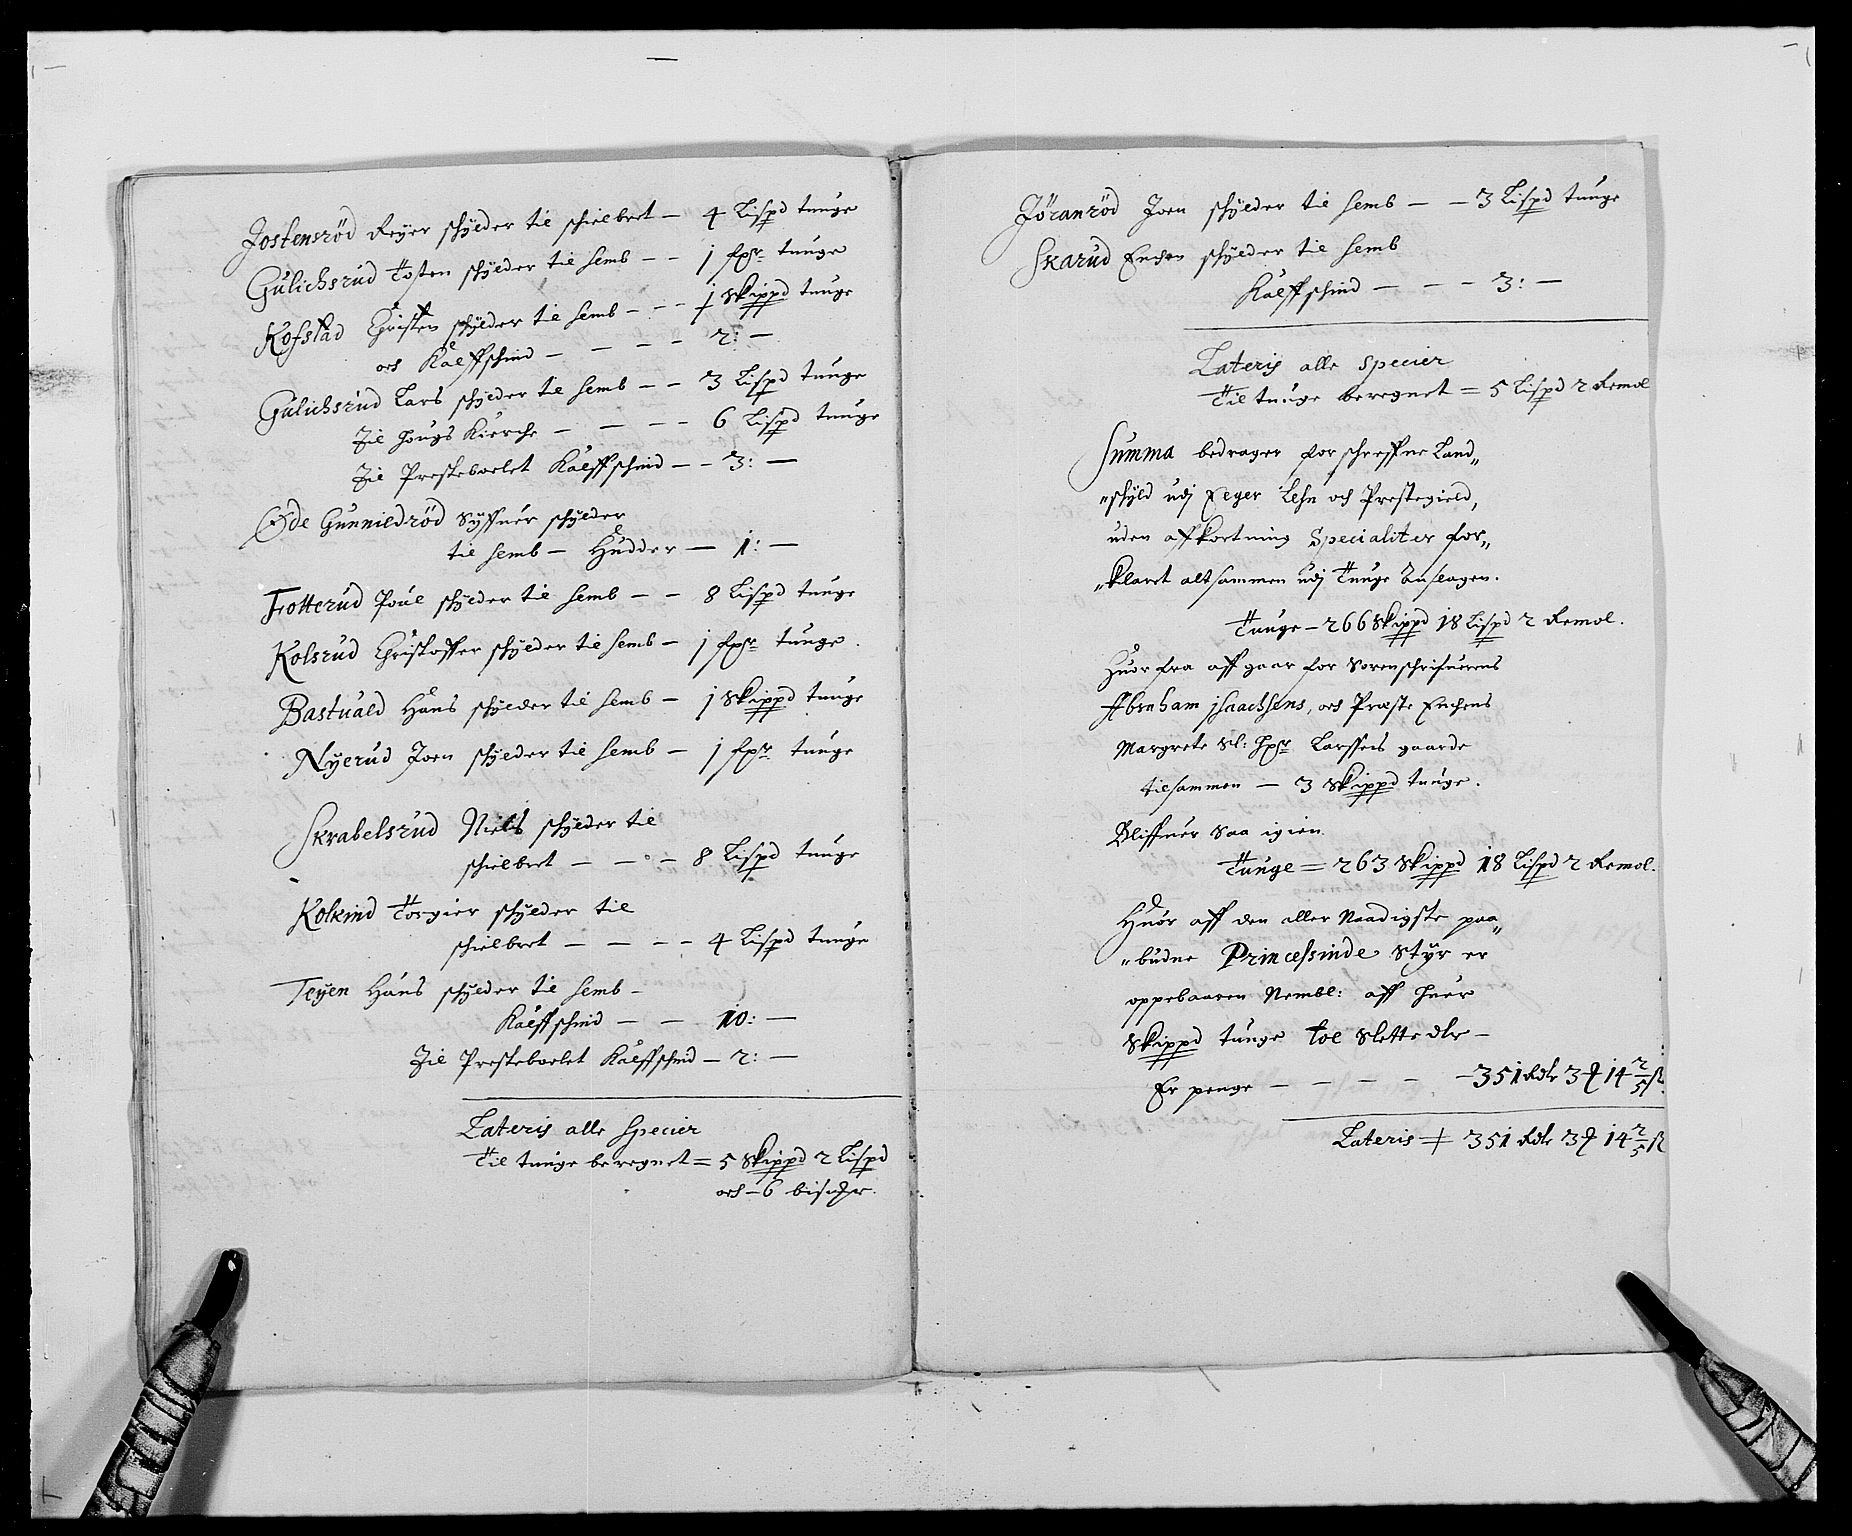 Jostensrød Reÿer schÿlder til schielbret — 4 Lispd tunge
Gulichsrud Tosten schÿlder til Semb — — 1 fr: tunge
Kofstad Christen schÿlder til Semb — — 1 Skippd tunge
och Kalffschind — — — — 2: —
Gulichsrud Lars schÿlder til Semb — — 3 Lispd tunge
Til Hougs Kierche — — — — 6 Lispd tunge
Til Prestebolet Kalffschind — — 3: —
Øde Gunnildrød Syffuer schÿlder
til Semb — Hudder — 1: —
Trotterud Poul schÿlder til Semb — — 8 Lispd tunge
Kolsrud Christoffer schÿlder til Semb — 1 fr: tunge
Bastuald Hans schÿlder til Semb — 1 Skippd tunge
Nyerud Joen schÿlder til Semb — 1 fr: tunge
Skrabelsrud Niels schÿlder til
schielbret — — — 8 Lispd tunge
Kolkind Torgier schÿlder til
schielbret — — — — 4 Lispd tunge
Teÿen Hans schÿlder til Semb —
Kalffschind — — 10: —
Til Prestebolet Kalffschind — 2: —
Lateris alle Specier
Til tunge beregnet = 5 Skippd 2 Lispd
och — 6 bismr.
Jöranröd Joen schÿlder til Semb — — 3 Lispd tunge
Skarud Enchen schÿlder til Semb
Kalffschind — — — 3: —
Lateris alle Specier
Til tunge beregnet = 5 Lispd 2 Remol
Summa bedrager forschreffne Land„
„schÿld udj Eger Lehn och Prestegield,
uden affkortning Specialiter for„
„klaret altsammen udj Tunge Anslagen.
Tunge — 266 Skippd 18 Lispd 2 Remol.
Huor fra affgaar for Sorenschrifuerens
Abraham jsaachsens, och Præste Enchens
Margrete Sl: Hr: Larssens gaarde
tilsammen — 3 Skippd tunge.
Bliffuer Saa igien
Tunge = 263 Skippd 18 Lispd 2 Remol.
Huor aff den aller Naadigste paa„
„budne Princessinde Styr er
oppebaaren Nembl: aff huer
Skippd tunge toe Slette dlr —
Er penge — — — — — 351 Rdlr 3 ꝶ 14 2/5 ß
Lateris = 351 Rdlr 3 ꝶ 14 2/5 ß